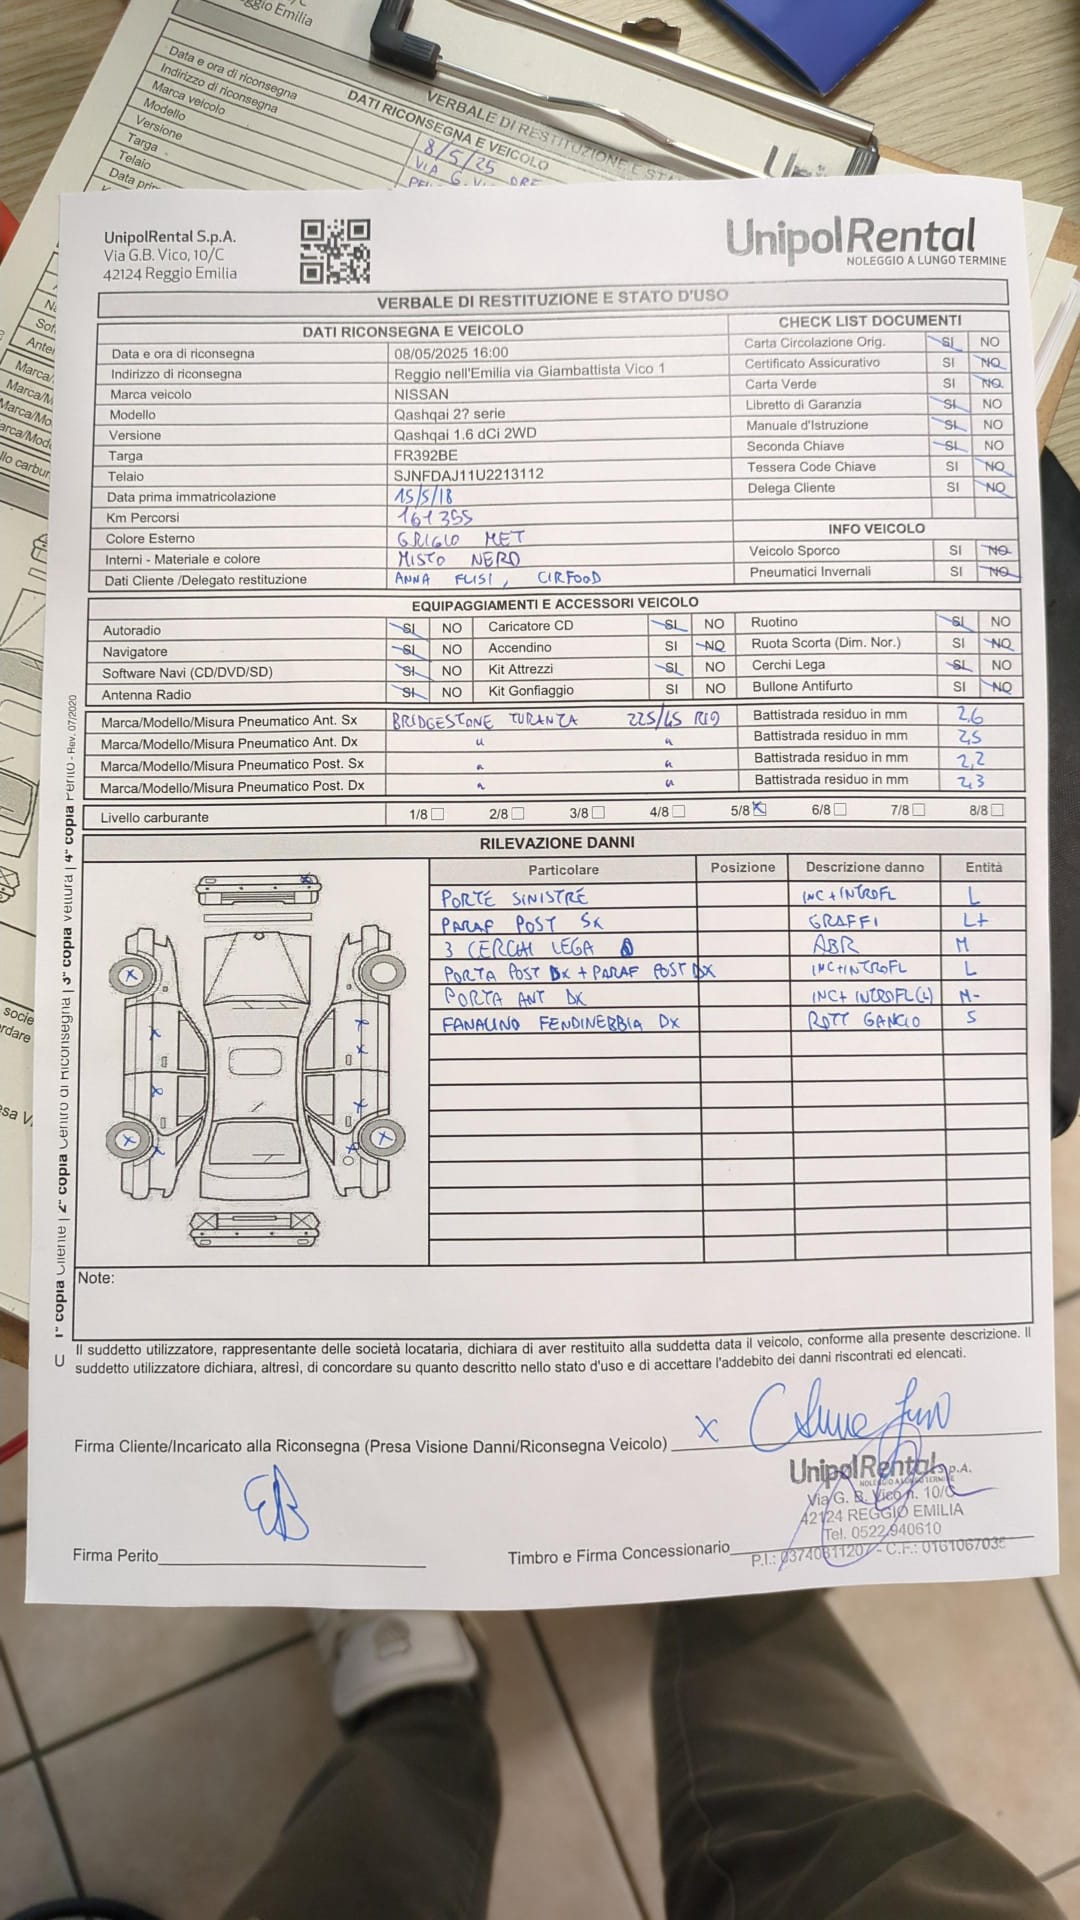 ggio Emilia
VERBALE DI RESTITUZIONE E STA
DATI RICONSEGNA E VEICOLO
Data e ora di riconsegna
8/5/25 ORE
Indirizzo di riconsegna
VIA G. VI
Marca veicolo
Modello
Versione
Targa
Telaio
UnipolRental S.p.A.
Via G.B. Vico, 10/C
42124 Reggio Emilia
UnipolRental
NOLEGGIO A LUNGO TERMINE
VERBALE DI RESTITUZIONE E STATO D'USO
DATI RICONSEGNA E VEICOLO
Data e ora di riconsegna 08/05/2025 16:00
Indirizzo di riconsegna Reggio nell'Emilia via Giambattista Vico 1
Marca veicolo NISSAN
Modello Qashqai 2? serie
Versione Qashqai 1.6 dCi 2WD
Targa FR392BE
Telaio SJNFDAJ11U2213112
Data prima immatricolazione 15/5/18
Km Percorsi 161355
Colore Esterno GRIGIO MET
Interni - Materiale e colore MISTO NERO
Dati Cliente /Delegato restituzione ANNA FLISI, CIRFOOD
CHECK LIST DOCUMENTI
Carta Circolazione Orig. SI NO
Certificato Assicurativo SI NO
Carta Verde SI NO
Libretto di Garanzia SI NO
Manuale d'Istruzione SI NO
Seconda Chiave SI NO
Tessera Code Chiave SI NO
Delega Cliente SI NO
INFO VEICOLO
Veicolo Sporco SI NO
Pneumatici Invernali SI NO
EQUIPAGGIAMENTI E ACCESSORI VEICOLO
Autoradio SI NO Caricatore CD SI NO Ruotino SI NO
Navigatore SI NO Accendino SI NO Ruota Scorta (Dim. Nor.) SI NO
Software Navi (CD/DVD/SD) SI NO Kit Attrezzi SI NO Cerchi Lega SI NO
Antenna Radio SI NO Kit Gonfiaggio SI NO Bullone Antifurto SI NO
Marca/Modello/Misura Pneumatico Ant. Sx BRIDGESTONE TURANZA 225/45 R19 Battistrada residuo in mm 2,6
Marca/Modello/Misura Pneumatico Ant. Dx " " Battistrada residuo in mm 2,5
Marca/Modello/Misura Pneumatico Post. Sx " " Battistrada residuo in mm 2,2
Marca/Modello/Misura Pneumatico Post. Dx " " Battistrada residuo in mm 2,3
Livello carburante 1/8 2/8 3/8 4/8 5/8 X 6/8 7/8 8/8
RILEVAZIONE DANNI
Particolare Posizione Descrizione danno Entità
PORTE SINISTRE INC + INTROFL L
PARAF POST SX GRAFFI L+
3 CERCHI LEGA ABR M
PORTA POST DX + PARAF POST DX INC+INTROFL L
PORTA ANT DX INC+ INTROFL(L) M-
FANALINO FENDINEBBIA DX ROTT GANCIO S
Note:
1° copia Cliente | 2° copia Centro di Riconsegna | 3° copia Vettura | 4° copia Perito - Rev. 07/2020
Il suddetto utilizzatore, rappresentante delle società locataria, dichiara di aver restituito alla suddetta data il veicolo, conforme alla presente descrizione. Il
suddetto utilizzatore dichiara, altresì, di concordare su quanto descritto nello stato d'uso e di accettare l'addebito dei danni riscontrati ed elencati.
Firma Cliente/Incaricato alla Riconsegna (Presa Visione Danni/Riconsegna Veicolo) X
UnipolRental S.p.A.
NOLEGGIO A LUNGO TERMINE
Via G. B. Vico n. 10/C
42124 REGGIO EMILIA
Tel. 0522.940610
Firma Perito
Timbro e Firma Concessionario
P.I.: 03740811207 - C.F.: 0161067035